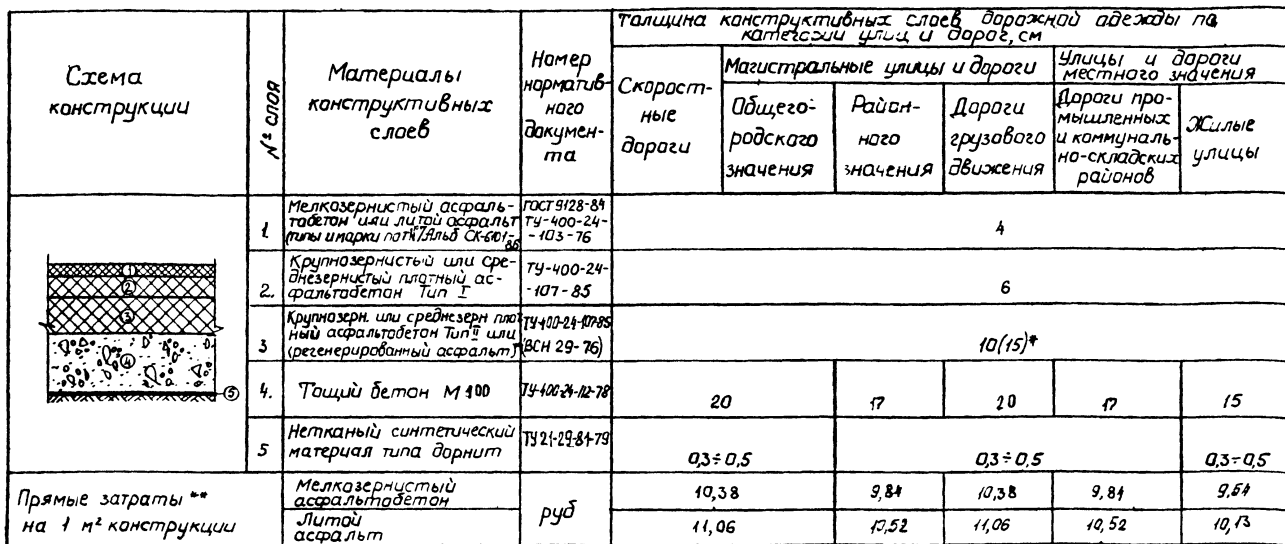 Схема
конструкции
№ слоя
Материалы
конструктивных
слоев
Номер
норматив-
ного
докумен-
та
Толщина конструктивных слоев дорожной одежды по
категории улиц и дорог, см
Скорост-
ные
дороги
Магистральные улицы и дороги
Общего-
родского
значения
Район-
ного
значения
Дороги
грузового
движения
Улицы и дороги
местного значения
Дороги про-
мышленных
и коммуналь-
но-складских
районов
Жилые
улицы
1
2
3
4
5
1
Мелкозернистый асфаль-
тобетон или литой асфальт
(типы и марки по Альб СК-6101-86
ГОСТ 9128-84
ТУ-400-24-
-103-76
4
2.
Крупнозернистый или сре-
днезернистый плотный ас-
фальтобетон Тип I
ТУ-400-24-
-107-85
6
3
Крупнозерн. или среднезерн плот
ный асфальтобетон Тип II или
(регенерированный асфальт)
ТУ-400-24-107-85
(ВСН 29-76)
10(15)*
4.
Тощий бетон М 100
ТУ-400-24-112-78
20
17
20
17
15
5
Нетканый синтетический
материал типа дорнит
ТУ 21-29-81-79
0,3÷0,5
0,3÷0,5
0,3÷0,5
Прямые затраты **
на 1 м² конструкции
Мелкозернистый
асфальтобетон
руб
10,38
9,84
10,38
9,84
9,54
Литой
асфальт
11,06
10,52
11,06
10,52
10,13